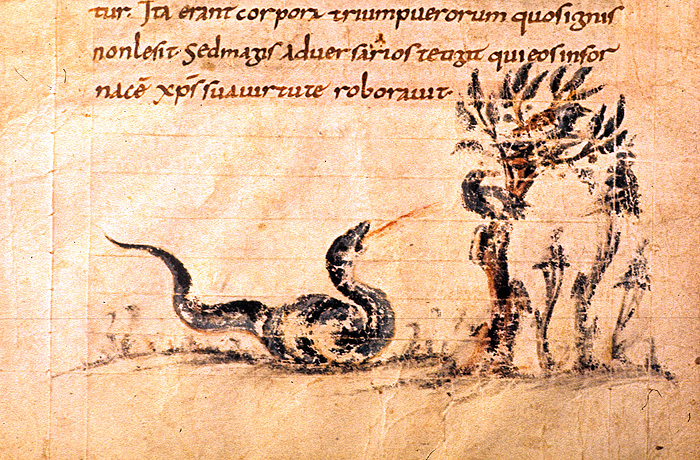 tur. Ita erant corpora trium puerorum quos ignis
non lesit Sed magis adversarios tetigit qui eos infor
nacē xp̄s sua virtute roboravit.